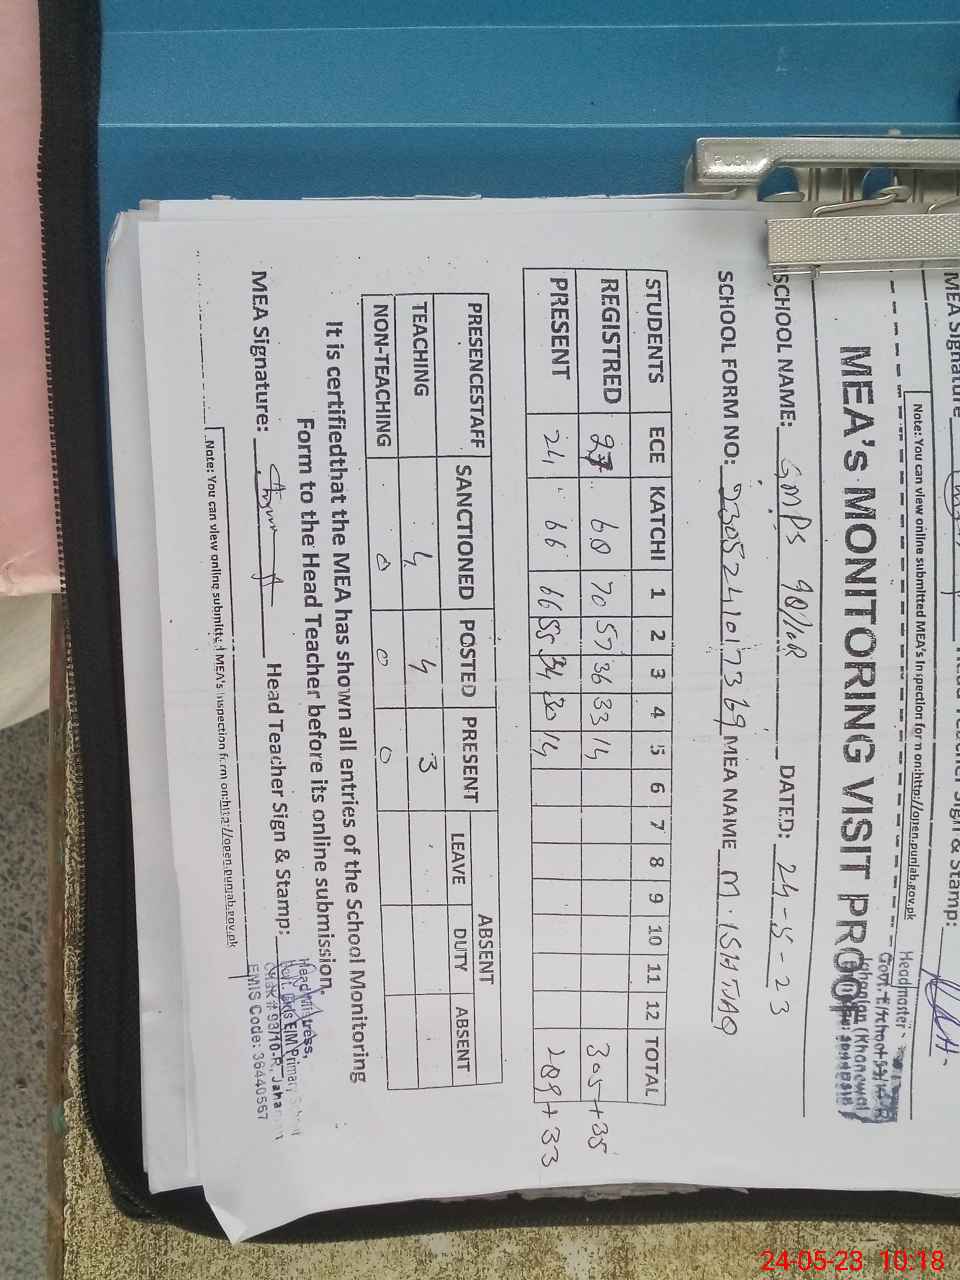 PUSH
MEA Signature
Head Teacher Sign & Stamp:
Note: You can view online submitted MEA's Inspection form on:http://open.punjab.gov.pk
Headmaster
MEA'S MONITORING VISIT PROOF
SCHOOL NAME: GMPS 90/10R DATED: 24-5-23
SCHOOL FORM NO: MEA NAME M. ISHTIAQ
STUDENTS ECE KATCHI 1 2 3 4 5 6 7 8 9 10 11 12 TOTAL
REGISTRED 27 60 70 57 36 33 14 305+35
PRESENT 24 66 55 34 30 14 289+33
PRESENCESTAFF SANCTIONED POSTED PRESENT ABSENT
LEAVE DUTY ABSENT
TEACHING 4 4 3
NON-TEACHING 0 0 0
It is certifiedthat the MEA has shown all entries of the School Monitoring
Form to the Head Teacher before its online submission.
MEA Signature: Head Teacher Sign & Stamp:
Head Mistress,
EMIS Code: 36440567
Note: You can view online submitted MEA's Inspection form on:http://open.punjab.gov.pk
24-05-23 10:18